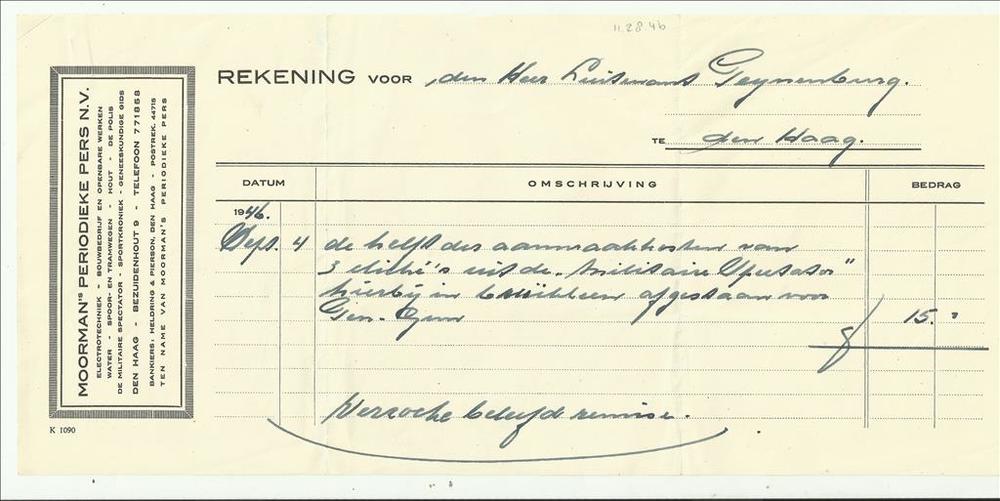 11.28.46
REKENING VOOR den Heer Luitenant Teynenburg.
TE den Haag.
MOORMAN'S PERIODIEKE PERS N.V.
ELECTROTECHNIEK - BOUWBEDRIJF EN OPENBARE WERKEN
WATER - SPOOR- EN TRAMWEGEN - HOUT - DE POLIS
DE MILITAIRE SPECTATOR - SPORTKRONIEK - GENEESKUNDIGE GIDS
DEN HAAG - BEZUIDENHOUT 9 - TELEFOON 771858
BANKIERS: HELDRING & PIERSON, DEN HAAG - POSTREK. 44715
TEN NAME VAN MOORMAN'S PERIODIEKE PERS
K 1090
DATUM OMSCHRIJVING BEDRAG
1946.
Sept. 4 de helft der aanmaakkosten van
3 cliché's uit de "Militaire Spectator"
hierbij in bruikleen afgestaan voor
Gen. 15.-
Verzoeke beleefd remise.